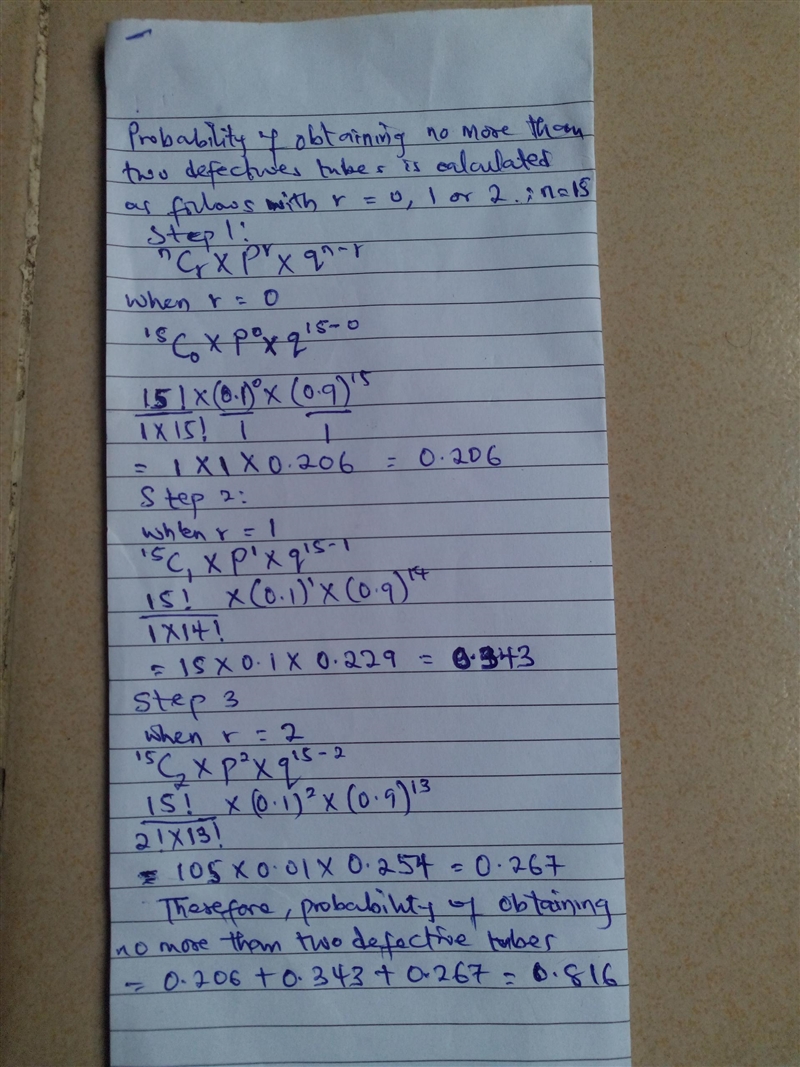 Probability of obtaining no more than
two defectives tubes is calculated
as follows with r = 0, 1 or 2. ; n=15
Step 1:
ⁿCᵣ × Pʳ × qⁿ⁻ʳ
when r = 0
¹⁵C₀ × P⁰ × q¹⁵⁻⁰
15! × (0.1)⁰ × (0.9)¹⁵
1 × 15! 1 1
= 1 × 1 × 0.206 = 0.206
Step 2:
when r = 1
¹⁵C₁ × P¹ × q¹⁵⁻¹
15! × (0.1)¹ × (0.9)¹⁴
1 × 14!
= 15 × 0.1 × 0.229 = 0.343
Step 3
when r = 2
¹⁵C₂ × P² × q¹⁵⁻²
15! × (0.1)² × (0.9)¹³
2! × 13!
= 105 × 0.01 × 0.254 = 0.267
Therefore, probability of obtaining
no more than two defective tubes
= 0.206 + 0.343 + 0.267 = 0.816